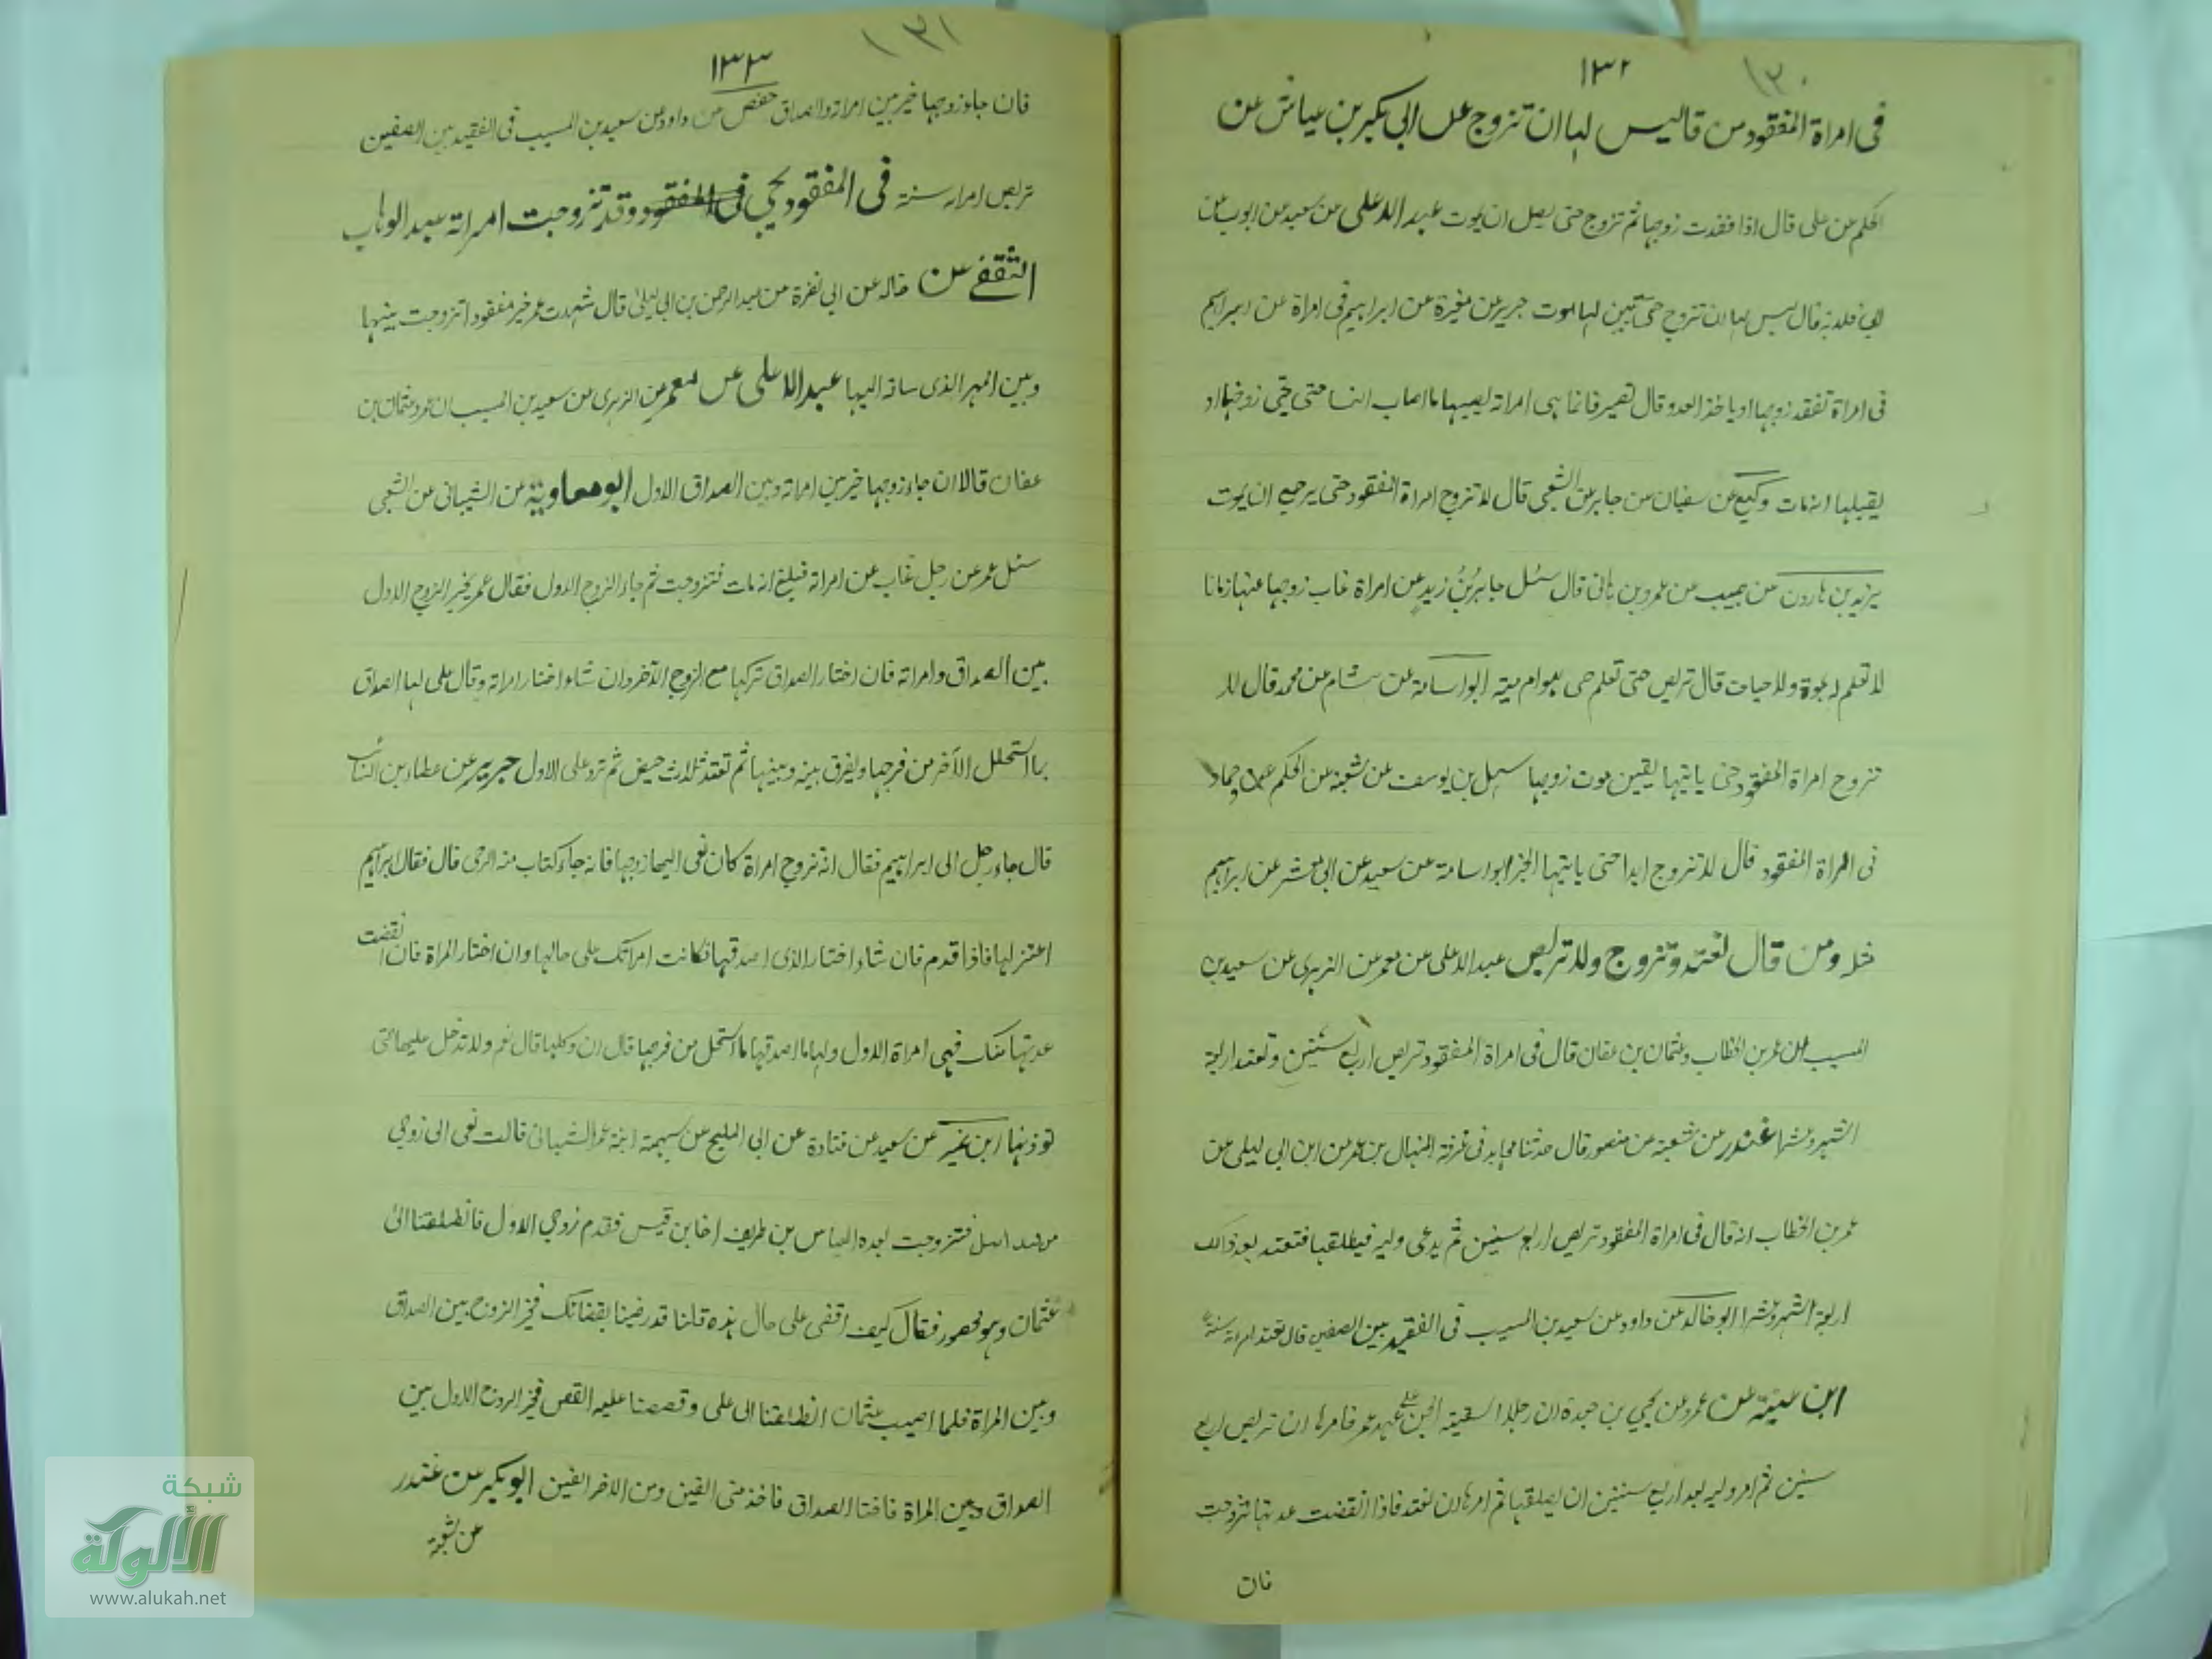 ١٣٠
١٣٢
فى امراة المفقود من قال ليس لها ان تزوج على ابى بكير بن عياش عن
الحكم عن على قال اذا فقدت زوجها ثم تزوج حتى يصل ان يموت عبد الاعلى عن سعيد عن ايوب عن
ابى قلابة قال ليس لها ان تتزوج حتى تبين لها موت جرير عن مغيرة عن ابراهيم فى امراة عن ابراهيم
فى امراة تفقد زوجها او ياخذ العدو قال تصبر فانما هى امراته يصيبها ما اصاب النسا حتى يجى زوجها او
يقبلها انه مات وكيع عن سفيان عن جابر عن الشعبى قال لا تزوج امراة المفقود حتى يرجع ان يموت
يزيد بن هارون عن حبيب عن عمرو بن هانى قال سئل جابر بن زيد عن امراة غاب زوجها عنها زمانا
لا تعلم له بموة ولا حيات قال تربص حتى تعلم حى هو ام ميته ابو اسامة عن هشام عن محمد قال لا
تزوج امراة المفقود حتى ياتيها يقين موت زوجها سهل بن يوسف عن شعبة عن الحكم وحماد
فى امراة المفقود قال لا تزوج ابدا حتى ياتيها الخبر ابو اسامة عن سعيد عن ابى معشر عن ابراهيم
مثله ومن قال تعتد وتزوج ولا تربص عبد الاعلى عن معمر عن الزهرى عن سعيد بن
المسيب ان عمر بن الخطاب وعثمان بن عفان قال فى امراة المفقود تربص اربع سنين وتعتد اربعة
اشهر وعشرا غندر عن شعبة عن منصور قال حدثنا مجاهد فى غرفة المنهال بن عمر عن ابن ابى ليلى عن
عمر بن الخطاب انه قال فى امراة المفقود تربص اربع سنين ثم يدعى وليه فيطلقها فتعتد بعد ذالك
اربعة اشهر وعشرا ابو خالد عن داود عن سعيد بن المسيب فى الفقيد بين الصفين قال تعتد امراته سنة
ابن عيينة عن عمرو عن يحيى بن جعدة ان رجلا استهوته الجن على عهد عمر فامرها ان تربص اربع
سنين ثم امر وليه بعد اربع سنين ان يطلقها ثم امرها ان تعتد فاذا انقضت عدتها تزوجت
فان
١٣١
١٣٣
فان جاء زوجها خير بين امراته والصداق حفص عن داود عن سعيد بن المسيب فى الفقيد بين الصفين
تربص امراته سنة فى المفقود يجى وقد تزوجت امراته عبد الوهاب
الثقفى عن خالد عن ابى نضرة عن عبد الرحمن بن ابى ليلى قال شهدت عمر خير مفقودا تزوجت بينها
وبين المهر الذى ساقه اليها عبد الاعلى عن معمر عن الزهرى عن سعيد بن المسيب ان عمر وعثمان بن
عفان قالا ان جاء زوجها خير بين امراته وبين الصداق الاول ابو معاوية عن الشيبانى عن الشعبى
سئل عمر عن رجل غاب عن امراته فبلغ انه مات فتزوجت ثم جاء الزوج الاول فقال عمر يخير الزوج الاول
بين الصداق وامراته فان اختار الصداق تركها مع الزوج الآخر وان شاء اختار امراته وقال على لها الصداق
بما استحلل الآخر من فرجها ويفرق بينه وبينها ثم تعتد ثلاث حيض ثم ترد على الاول جرير عن عطاء بن السائب
قال جاء رجل الى ابراهيم فقال انه تزوج امراة كان نعى اليها زوجها فانه جاء كتاب منه الرحى قال فقال ابراهيم
اعتزلها فاذا قدم فان شاء اختار الذى اصدقها فكانت امراتك على حالها وان اختار المراة فان انقضت
عدتها منك فهى امراة الاول ولها ما اصدقتها ما استحل من فرجها قال ان وكلها قال نعم ولا تدخل عليها حتى
توذنها ابن نمير عن سعيد عن قتادة عن ابى المليح عن سهيمة ابنة عمر الشيبانى قالت نعى الى زوجى
من فتزوجت بعده العباس بن طريف اخا بن قيس فقدم زوجى الاول فانطلقنا الى
عثمان وهو محصور فقال كيف اقضى على حال هذه قلنا قد رضينا بقضائك فخير الزوج بين الصداق
وبين المراة فلما اصيب عثمان انطلقنا الى على وقصصنا عليه القصه فخير الزوج الاول بين
الصداق وبين المراة فاختار الصداق فاخذ منى الفين ومن الاخر الفين ابو بكير عن غندر
عن شعبة
شبكة
الألوكة
www.alukah.net